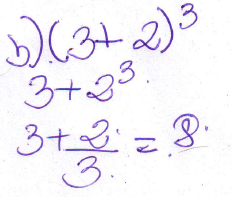 b) (3+2)³
3+2³.
3+2/3. = 8.